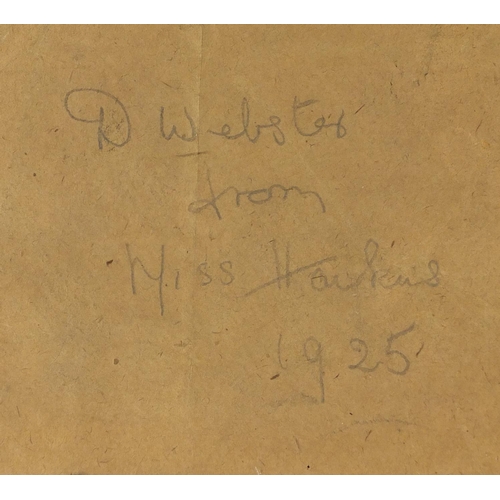 D Webster
from
Miss Hawkins
1925